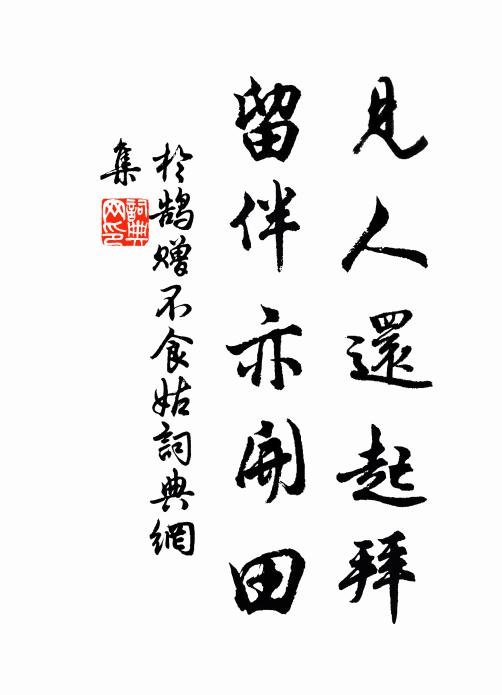 見人還起拜
留伴亦開田
於鵠贈不食姑詞典網
集
詞典
网印